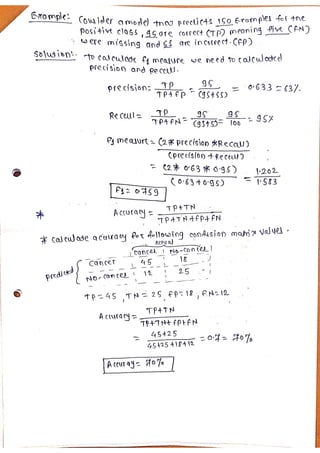 Example: Consider a model that predicts 150 Examples for the
positive class, 95 are correct (TP) meaning five (FN)
were missing and 55 are incorrect. (FP)
Solution:- To calculate f1 measure we need to calculated
precision and Recall.
precision: TP / TP+FP = 95 / (95+55) = 0.633 = 63%.
Recall = TP / TP+FN = 95 / (95+5) = 95 / 100 = 95%
f1 measure = (2 * precision * Recall) / (precision + Recall)
= (2 * 0.63 * 0.95) / (0.63+0.95) = 1.202 / 1.583
F1 = 0.759
* Accuracy = TP+TN / TP+TN+FP+FN
* calculate accuracy for following confusion matrix values.
Actual
cancel No-cancel
predicted cancel 45 18
No-cancel 12 25
TP=45, TN=25, FP=18, FN=12
Accuracy = TP+TN / TP+TN+FP+FN
= 45+25 / 45+25+18+12 = 0.7 = 70%
Accuracy = 70%